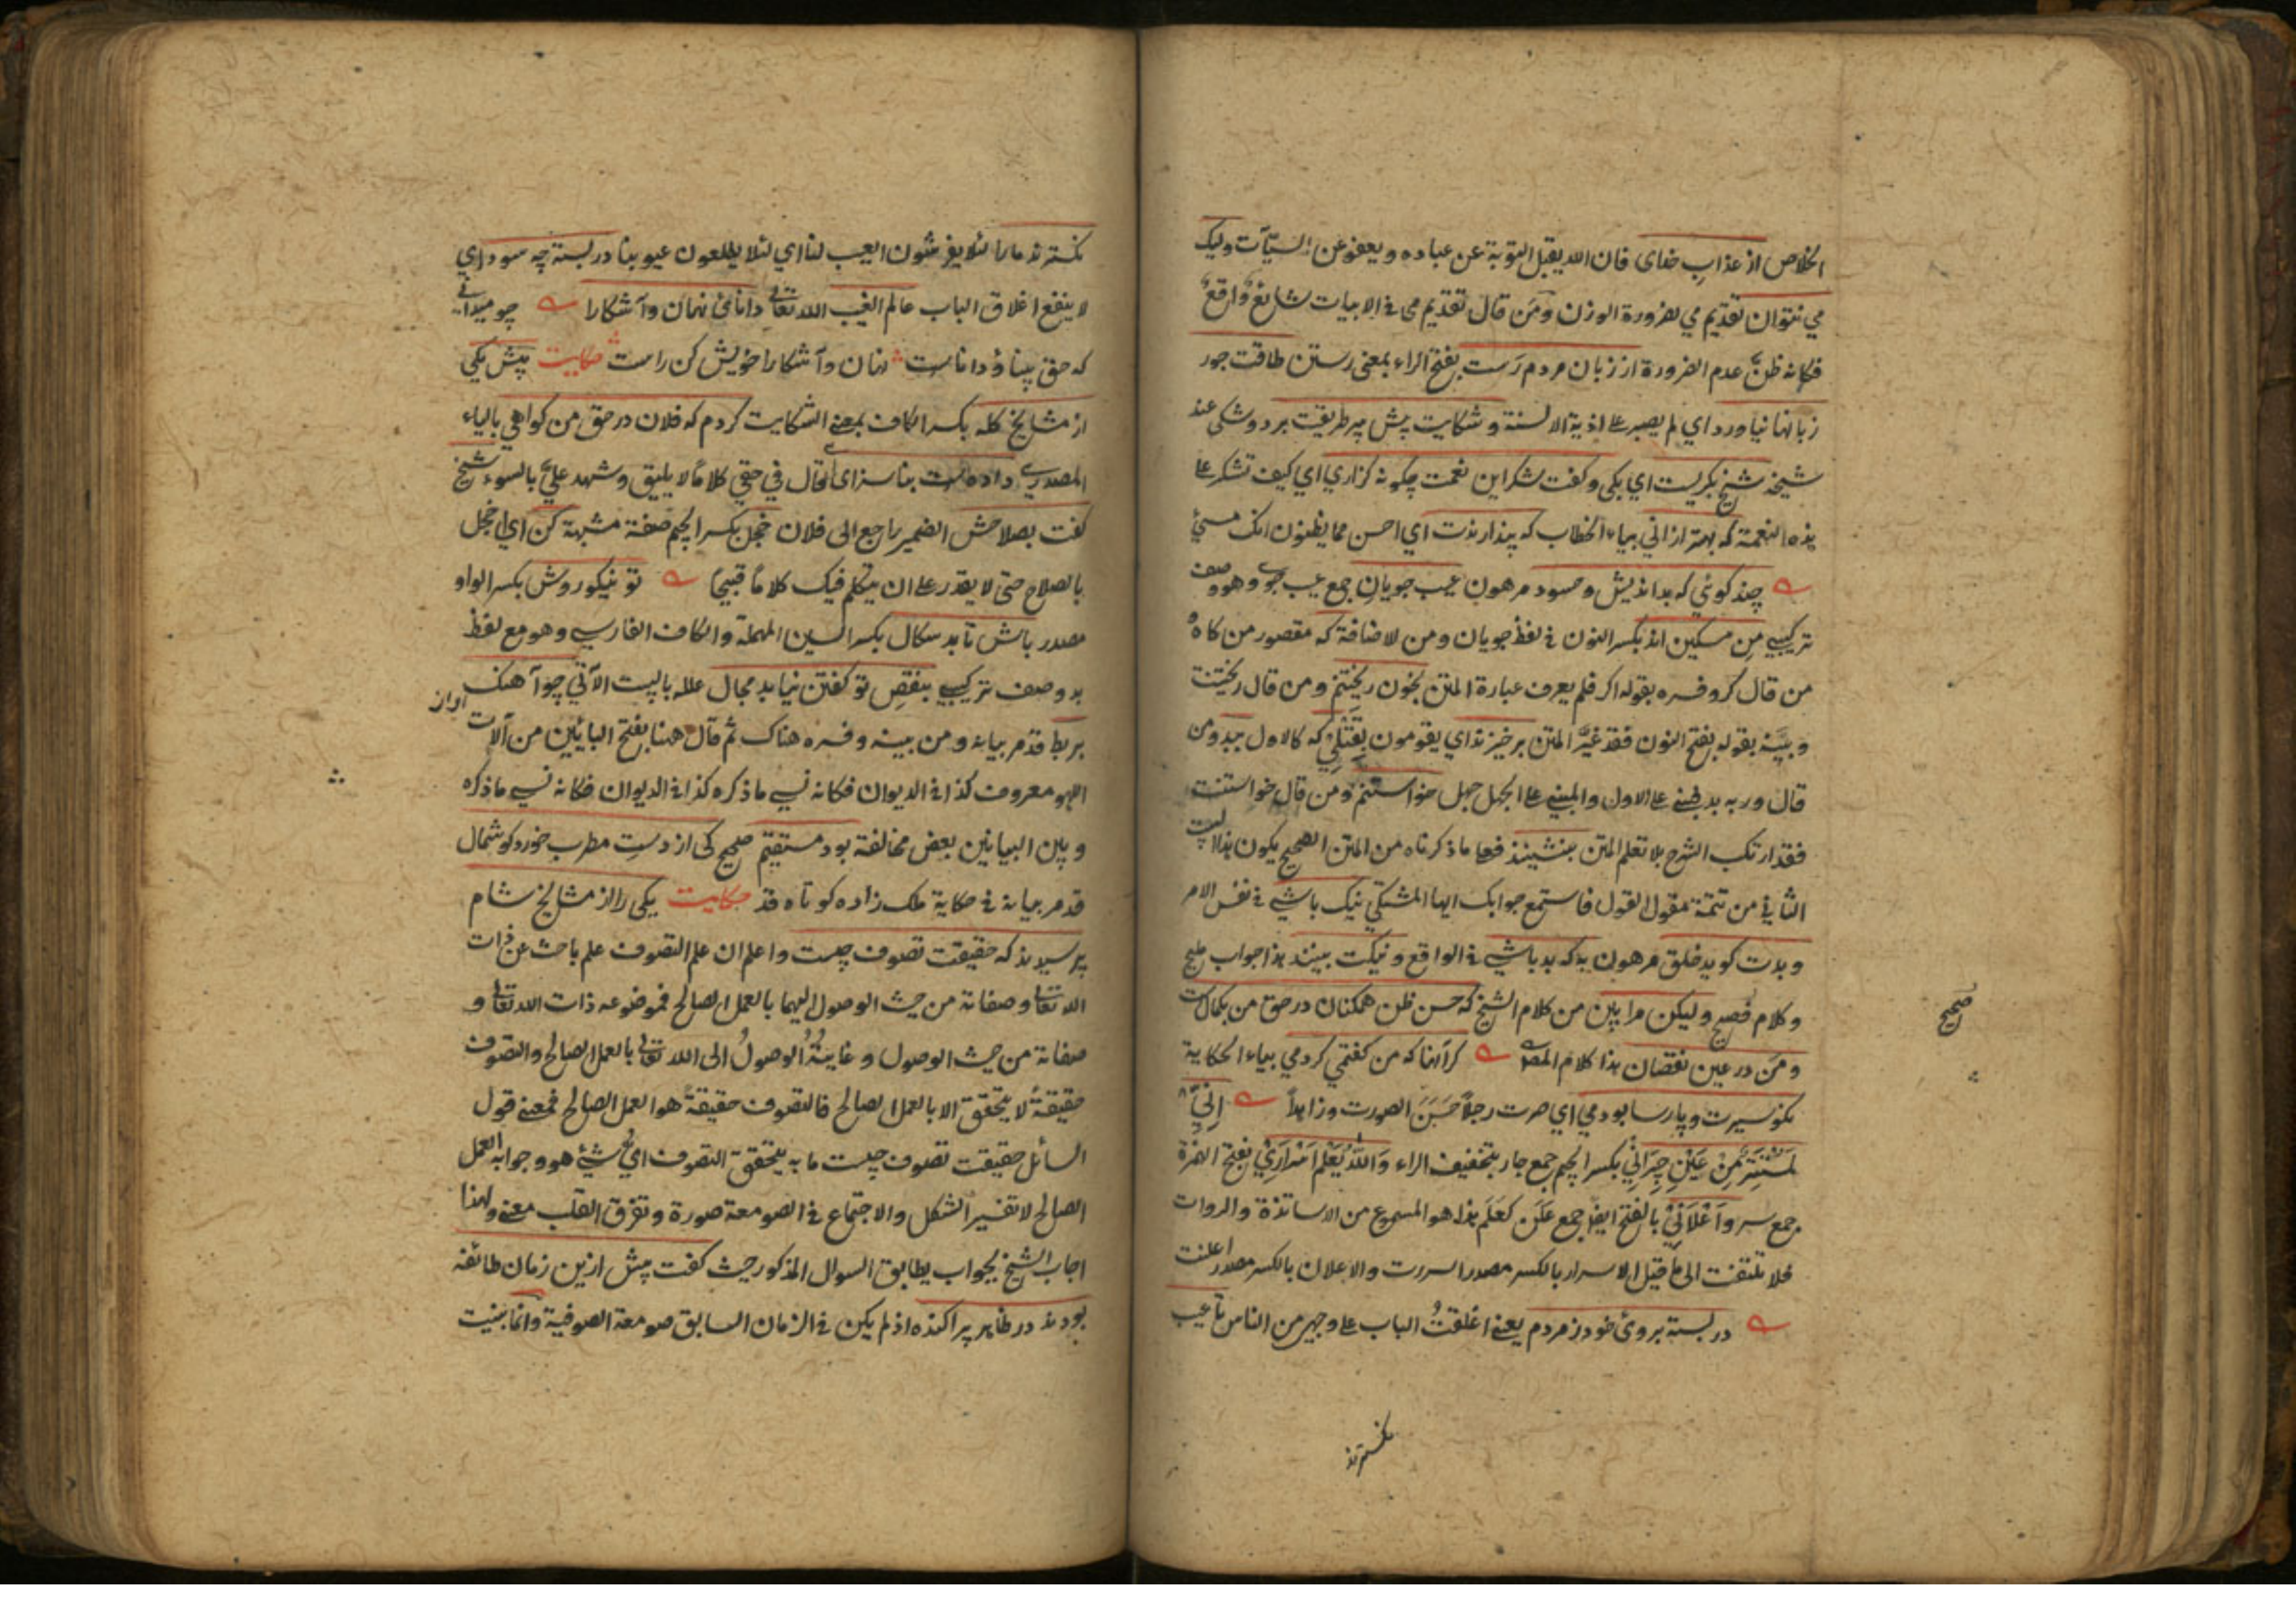 الخلاص از عذاب خدای فان الله يقبل التوبة عن عباده ويعفو عن السيآت وليک
مي نتوان تقديم مي لضرورة الوزن ومن قال تقديم می فى الابيات شايع وارقع
فكانه ظن عدم الضرورة از زبان مردم رست بفتح الراء بمعنى رستن طاقت جور
زبانها نياورد اي لم يصبر على اذية الالسنة وشكايت پيش پير طريقت برد وشكى عند
شيخه شيخ بكريست اي بكى وكفت شكر اين نعمت چكونه كزاري اي كيف تشكر على
هذه النعمة كه بهتر ازاني بياء الخطاب كه پندارندت اي احسن مما يظنون انک مسيئ
چند كوئي كه بدانديش وحسود مرهون عيب جويان جمع عيب جوى وهو وصف
تركيبي من مسكين اند بكسر النون فى لفظ جويان ومن للاضافة كه مقصور من كاه و
من قال كر وفسره بقوله اكر فلم يعرف عبارة المتن بخون ريختنم ومن قال ريختنت
وبينه بقوله بفتح النون فقد غير المتن برخيزند اي يقومون بقتلي كه كالاول ببد ومن
قال وربه بد فبني على الاول والمبني على الجهل جهل خواستنم ومن قال خواستنت
فقد ارتكب الشرح بلا تعلم المتن بنشينند فعلى ما ذكرناه من المتن الصحيح يكون هذا البيت
الثاني من تتمة مقول القول فاستمع جوابک ايها المشتكي نيک باشي فى نفس الامر
وبدت كويد خلق مرهون به كه بد باشي فى الواقع ونيكت بينند هذا جواب مليح
وكلام فصيح وليكن مرا بين من كلام الشيخ كه حسن ظن همكنان در حق من بكمالست
ومن در عين نقصان هذا كلام المص كر آنها كه من كفتمي كردمي بياء الحكاية
نكو سيرت وپارسا بودمي اي صرت رجلاً حسن الصورت وزاهداً اِنّي
لَمُسْتَتِرٌ مِنْ عَيْنِ جِيرَانِي بكسر الجيم جمع جار بتخفيف الراء وَاللّٰهُ يَعْلَمُ اَسْرَارِيْ بفتح الهمزة
جمع سر وَاَعْلَانِيْ بالفتح ايضا جمع عَلَن كعَلَم هذا هو المسموع من الاساتذة والروات
فلا تلتفت الى ما قيل الاسرار بالكسر مصدر اسررت والاعلان بالكسر مصدر اعلنت
در بسته بروى خود ز مردم يعني اغلقتُ الباب على وجهي من الناس تا عيب
صحيح
نكسترند
نكسترند مارا لئلا يفرشون العيب لنا اي لئلا يطلعون عيوبنا در بسته چه سود اي
لا ينفع اغلاق الباب عالم الغيب الله تعالى داناى نهان وآشكارا چو ميدانى
كه حق بينا ودانا ست نهان وآشكارا خويش كن راست حكايت پيش يكي
از مشايخ كله بكسر الكاف بمعنى الشكايت كردم كه فلان در حق من كواهي بالياء
المصدري داده ست بناسزاى اي قال في حقي كلاماً لا يليق وشهد عليّ بالسوء شيخ
كفت بصلاحش الضمير راجع الى فلان خجل بكسر الجيم صفة مشبهة كن اي اخجل
بالصلاح حتى لا يقدر على ان يتكلم فيک كلاماً قبيحاً تو نيكو روش بكسر الواو
مصدر باش تا بد سكال بكسر السين المهملة والكاف الفارسي وهو مع لفظ
بد وصف تركيبي بنقص تو كفتن نيابد مجال علله بالبيت الآتي چو آهنک
آواز
بربط قد مر بيانه ومن بينه وفسره هناک ثم قال هنا بفتح البائين من آلات
اللهو معروف كذا فى الديوان فكانه نسي ما ذكره كذا فى الديوان فكانه نسي ما ذكره
وبين البيانين بعض مخالفة بود مستقيم صحيح كى از دست مطرب خورد كوشمال
قد مر بيانه فى حكاية ملک زاده كوتاه قد حكايت يكى را از مشايخ شام
پرسيدند كه حقيقت تصوف چيست واعلم ان علم التصوف علم باحث عن ذات
الله تعالى وصفاته من حيث الوصول اليهما بالعمل الصالح فموضوعه ذات الله تعالى و
صفاته من حيث الوصول وغايتهُ الوصولُ الى الله تعالى بالعمل الصالح والتصوف
حقيقةً لا يتحقق الا بالعمل الصالح فالتصوف حقيقةً هو العمل الصالح فمعنى قول
السائل حقيقت تصوف چيست ما به يتحقق التصوف اي شيئ هو وجوابه العمل
الصالح لا تغيير الشكل والاجتماع فى الصومعة صورة وتفرق القلب معنى ولهذا
اجاب الشيخ بجواب يطابق السوال المذكور حيث كفت پيش ازين زمان طائفه
بودند در ظاهر پراكنده اذ لم يكن فى الزمان السابق صومعة الصوفية وانما بنيت